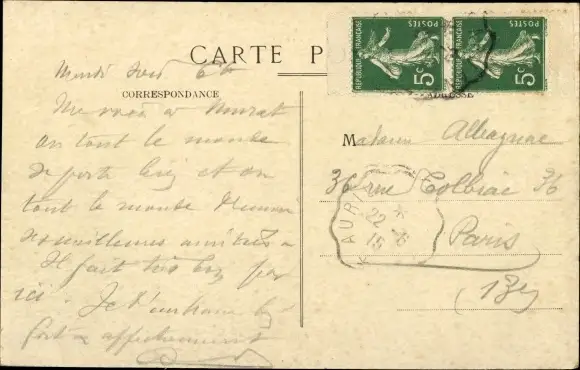 CARTE P
CORRESPONDANCE
ADRESSE
RÉPUBLIQUE FRANÇAISE 5c POSTES
RÉPUBLIQUE FRANÇAISE 5c POSTES
Mardi soir
Me voici a Murat
ou tout le monde
se porte bien et ou
tout le monde
meilleures amitiés
Il fait très bon par
ici. Je t'embrasse bien
fort & affectueusement
Madame
36 rue Tolbiac 36
Paris
(13e)
AURI
22 - 8
15